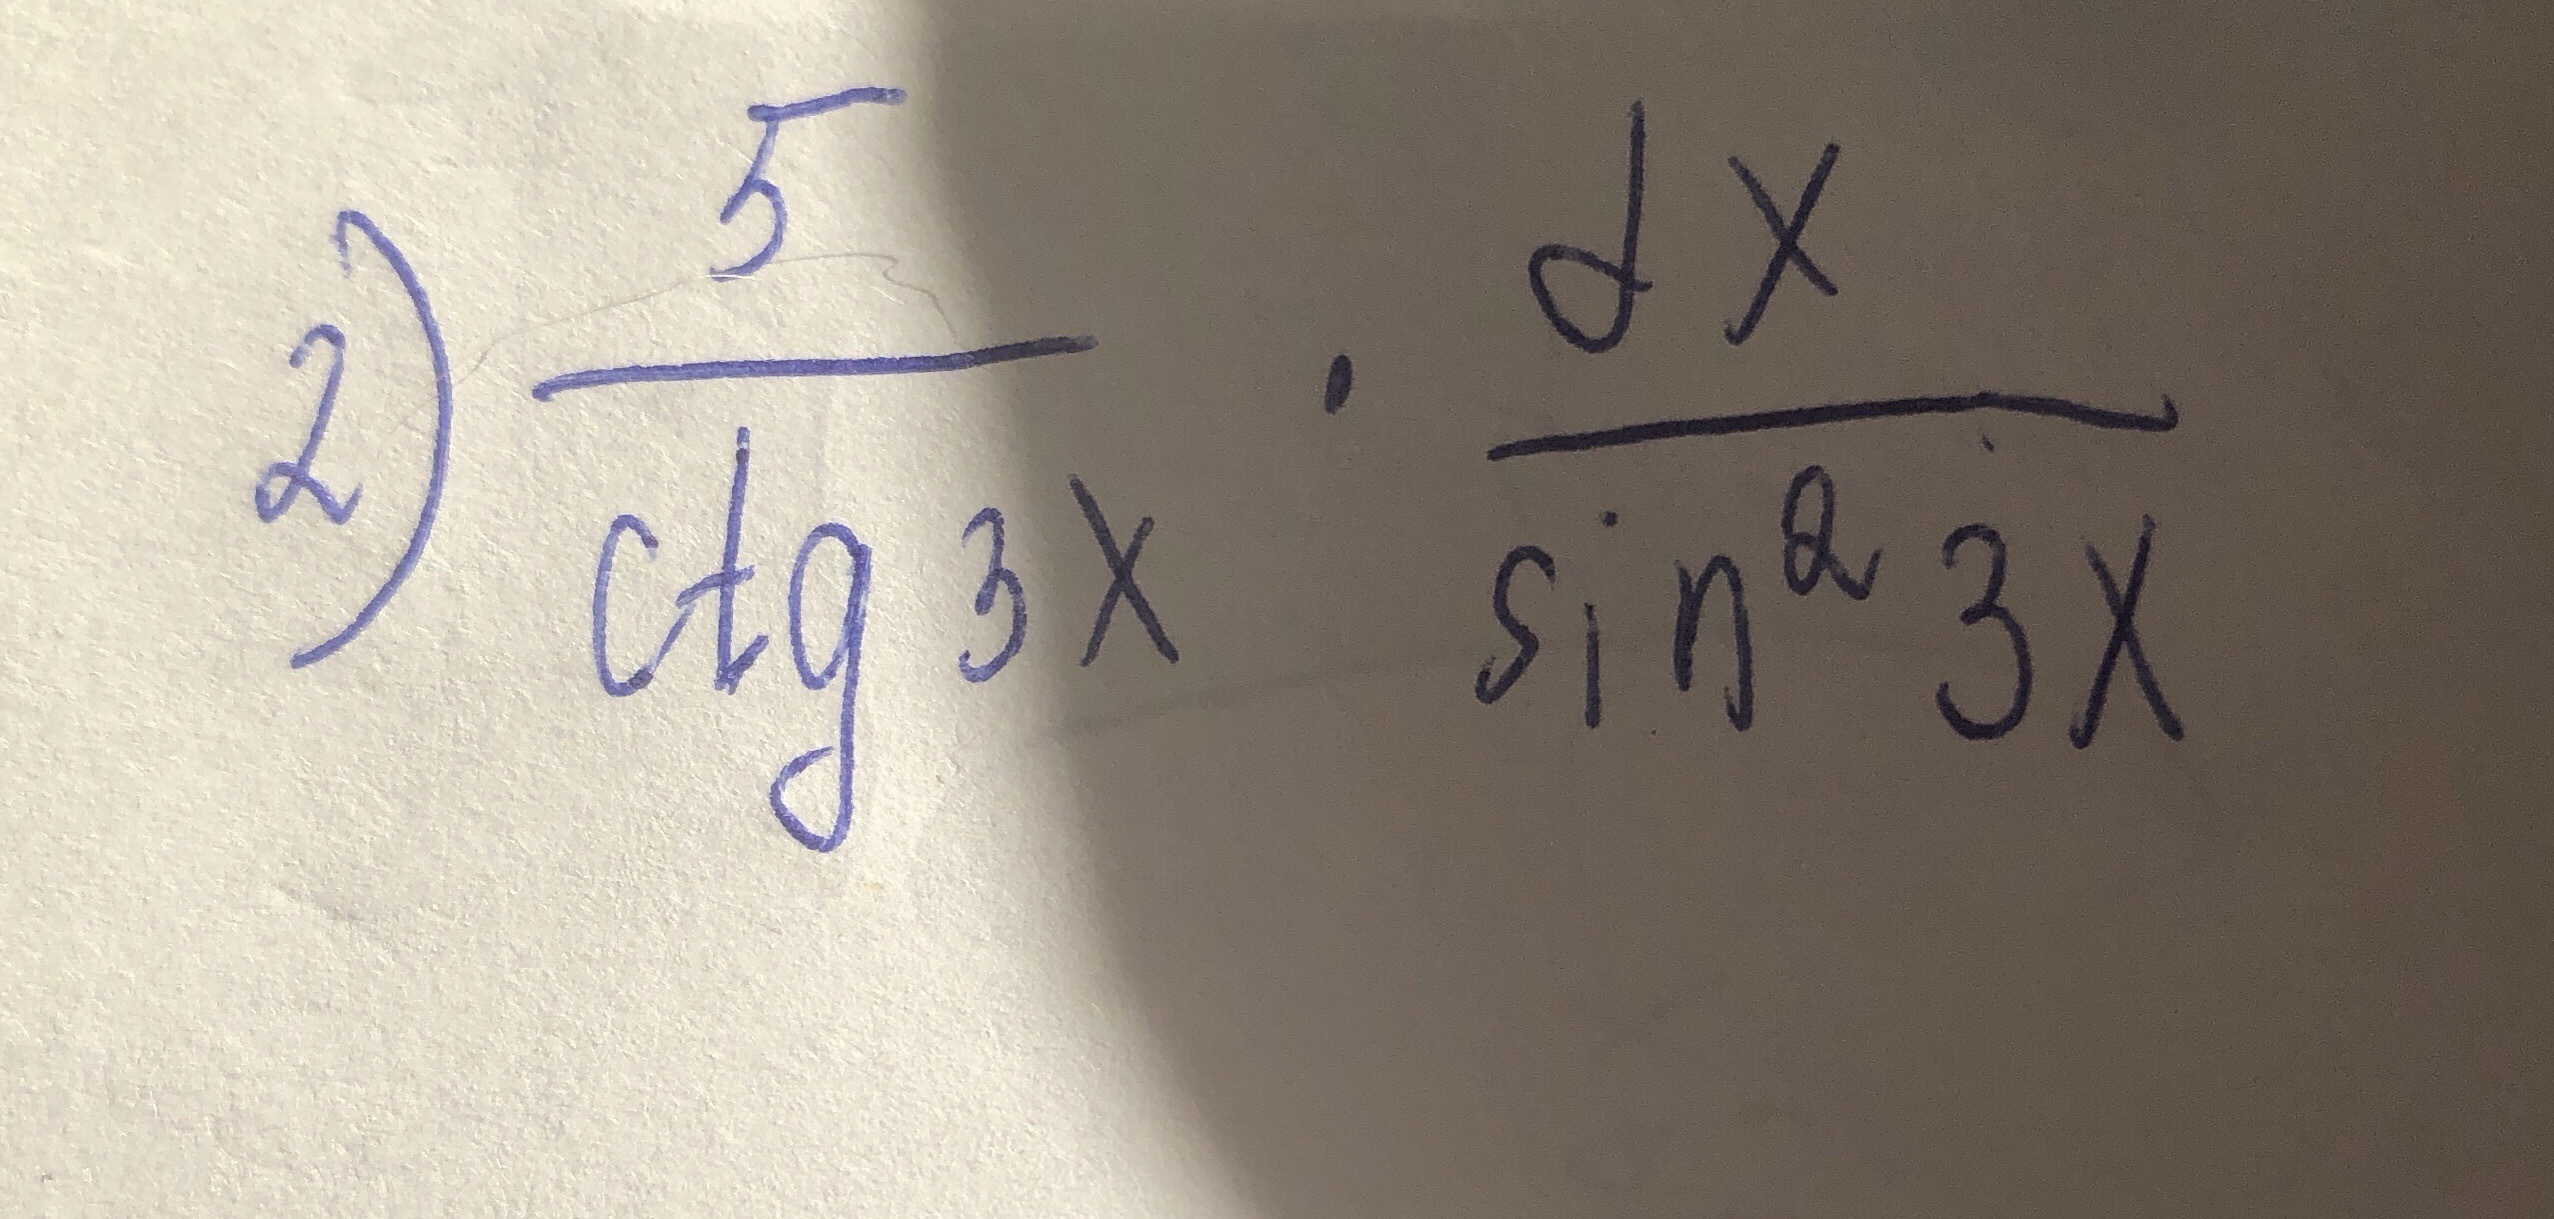 2) 5/ctg 3x · dx/sin² 3x